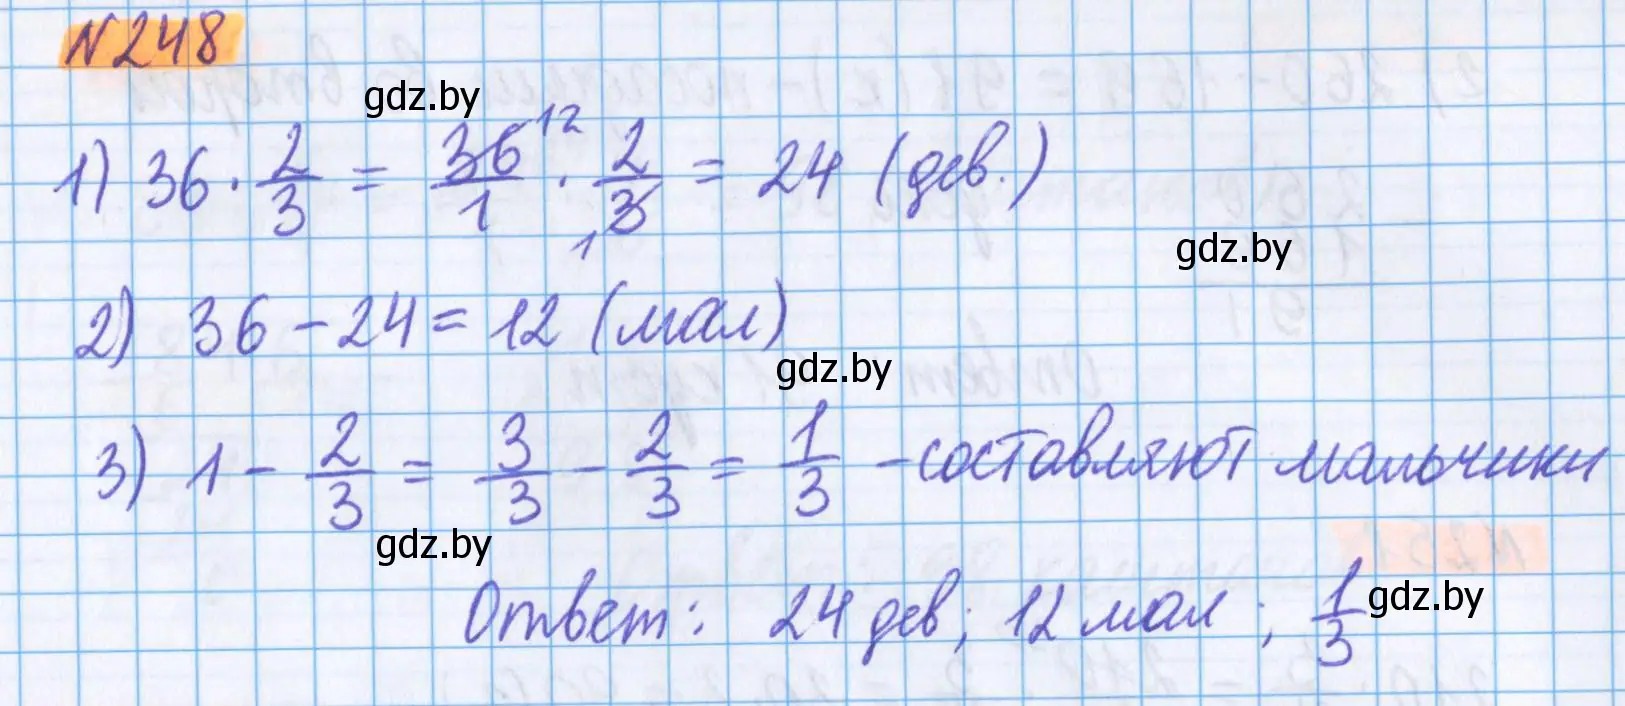 N248
gdz.by
1) 36 · 2/3 = 36/1 12 · 2/3 1 = 24 (дев.)
gdz.by
2) 36 - 24 = 12 (мал)
gdz.by
3) 1 - 2/3 = 3/3 - 2/3 = 1/3 - составляют мальчики
gdz.by
Ответ: 24 дев; 12 мал; 1/3
gdz.by